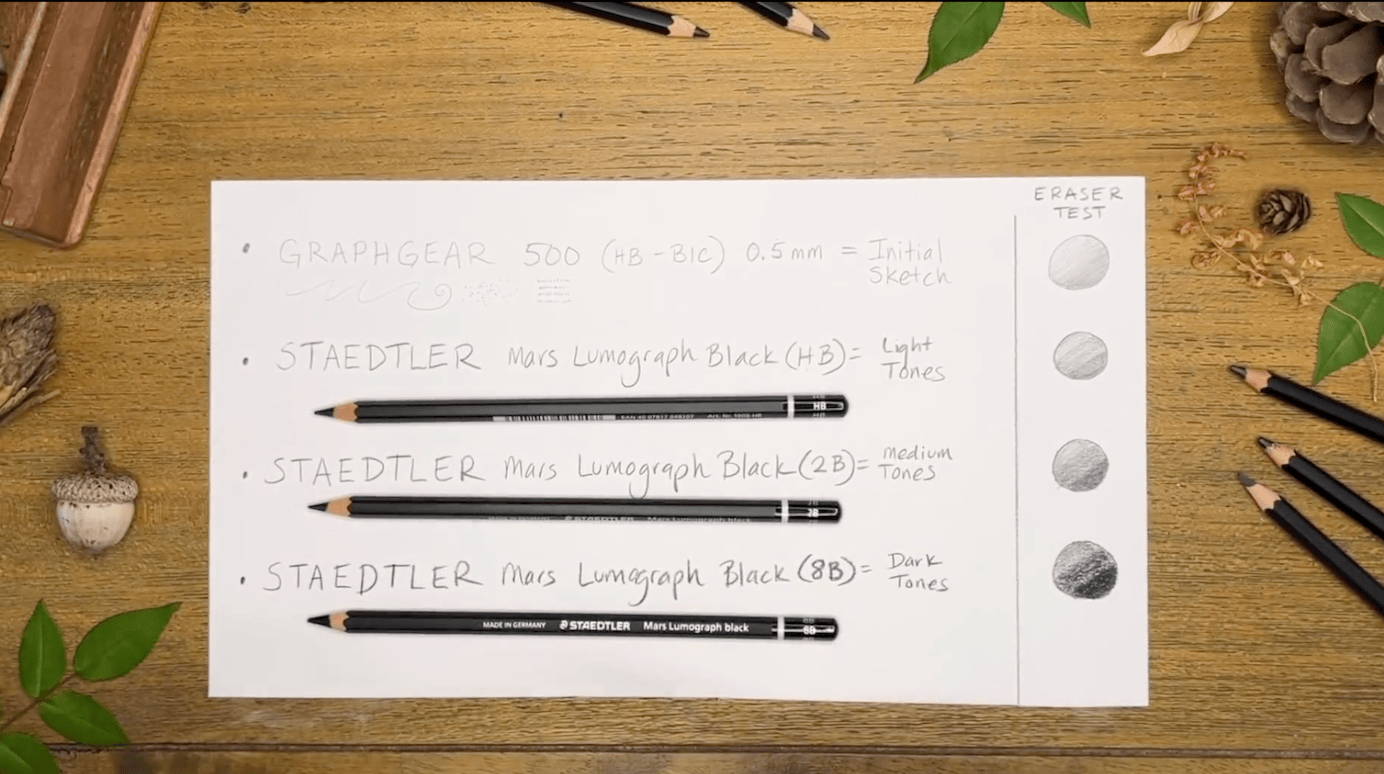 ERASER
TEST
• GRAPHGEAR 500 (HB-BIC) 0.5mm = Initial
Sketch
• STAEDTLER Mars Lumograph Black (HB)= Light
Tones
HB
• STAEDTLER Mars Lumograph Black (2B)= medium
Tones
STAEDTLER Mars Lumograph black 2B
• STAEDTLER Mars Lumograph Black (8B)= Dark
Tones
MADE IN GERMANY STAEDTLER Mars Lumograph black